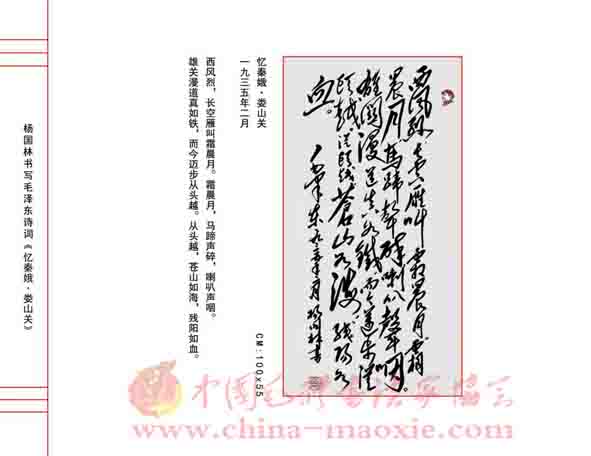 杨国林书写毛泽东诗词《忆秦娥·娄山关》
忆秦娥·娄山关
一九三五年二月
西风烈，长空雁叫霜晨月。霜晨月，马蹄声碎，喇叭声咽。
雄关漫道真如铁，而今迈步从头越。从头越，苍山如海，残阳如血。
CM:100x55
西风烈长空雁叫霜晨月霜
晨月马蹄声碎喇叭声咽。
雄关漫道真如铁而今迈步从
头越从头越苍山如海残阳如
血。
毛泽东
杨国林书
中国毛体书法家协会
www.china-maoxie.com